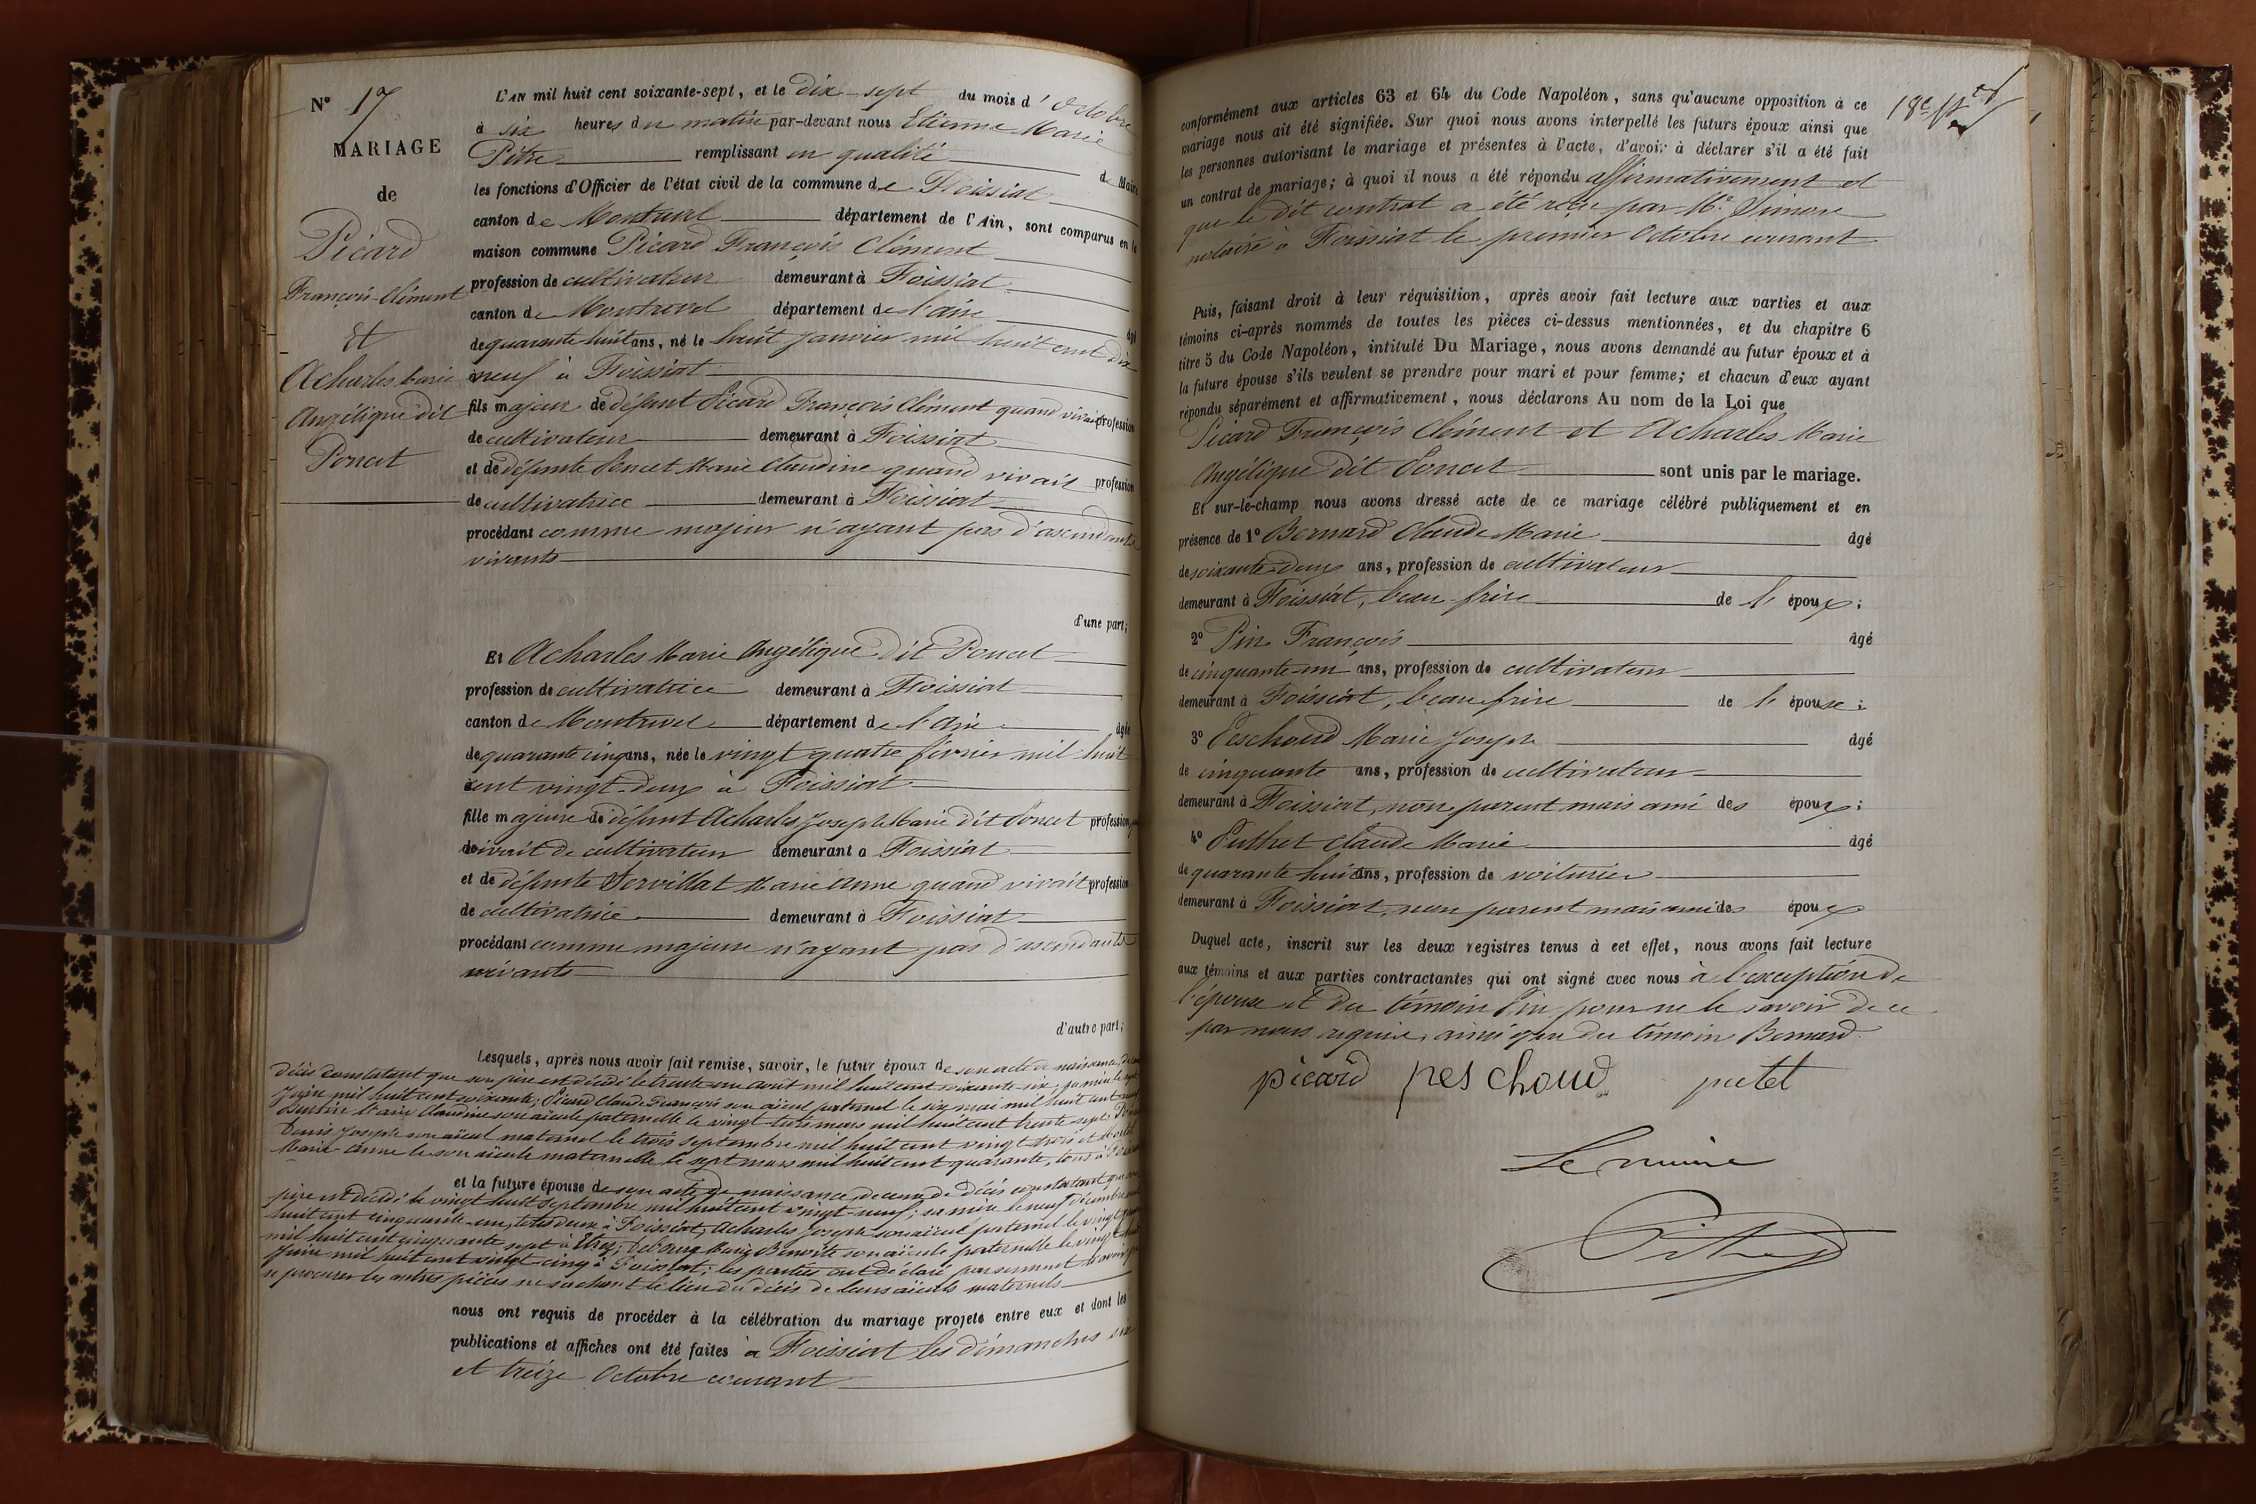 N° 17
MARIAGE
de
Picard
François-Clément
Et
Acharles Marie
Angélique dit
Poncet
L'AN mil huit cent soixante-sept, et le dix-sept du mois d'Octobre
à six heures du matin par-devant nous Etienne Marie
Pitre remplissant en qualité de Maire
les fonctions d'Officier de l'état civil de la commune de Foissiat
canton de Montrevel département de l'Ain, sont comparus en la
maison commune Picard François Clément
profession de cultivateur demeurant à Foissiat
canton de Montrevel département de l'ain âgé
de quarante huit ans, né le huit janvier mil huit cent dix
neuf à Foissiat
fils majeur de défunt Picard François Clément quand vivait profession
de cultivateur demeurant à Foissiat
et de défunte Poncet Marie Claudine quand vivait profession
de cultivatrice demeurant à Foissiat
procédant comme majeur n'ayant pas d'ascendants
vivants
d'une part;
Et Acharles Marie Angélique dit Poncet
profession de cultivatrice demeurant à Foissiat
canton de Montrevel département de l'Ain âgée
de quarante cinq ans, née le vingt quatre février mil huit
cent vingt-deux à Foissiat
fille majeure de défunt Acharles Joseph Marie dit Poncet profession
vivait de cultivateur demeurant à Foissiat
et de défunte Servillat Marie Anne quand vivait profession
de cultivatrice demeurant à Foissiat
procédant comme majeure n'ayant pas d'ascendants
vivants
d'autre part;
Lesquels, après nous avoir fait remise, savoir, le futur époux de son acte de naissance, de
décès constatant que son père est décédé le trente-un août mil huit cent soixante-six; sa mère le sept
Juin mil huit cent soixante; Picard Claude François son aïeul paternel le six mai mil huit cent
Marie Claudine son aïeule paternelle le vingt-trois mars mil huit cent trente-sept;
Denis Joseph son aïeul maternel le trois septembre mil huit cent vingt-trois et
Marie-Anne son aïeule maternelle le sept mars mil huit cent quarante, tous à Foissiat
et la future épouse de son acte de naissance de ceux de décès constatant que son
père est décédé le vingt huit septembre mil huit cent vingt-neuf; sa mère le neuf décembre
huit cent cinquante-un, tous deux à Foissiat; Acharles Joseph son aïeul paternel le vingt
mil huit cent cinquante sept à Etrez; Marie Benoite son aïeule paternelle le vingt
Juin mil huit cent vingt-cinq à Foissiat; les parties ont déclaré par serment n'avoir pu
se procurer les autres pièces ne sachant le lieu du décès de leurs aïeuls maternels
nous ont requis de procéder à la célébration du mariage projeté entre eux et dont les
publications et affiches ont été faites à Foissiat les dimanches six
et treize Octobre courant
conformément aux articles 63 et 64 du Code Napoléon, sans qu'aucune opposition à ce
mariage nous ait été signifiée. Sur quoi nous avons interpellé les futurs époux ainsi que
les personnes autorisant le mariage et présentes à l'acte, d'avoir à déclarer s'il a été fait
un contrat de mariage; à quoi il nous a été répondu affirmativement et
que le dit contrat a été reçu par Me Simon
notaire à Foissiat le premier Octobre courant
Puis, faisant droit à leur réquisition, après avoir fait lecture aux parties et aux
témoins ci-après nommés de toutes les pièces ci-dessus mentionnées, et du chapitre 6
titre 5 du Code Napoléon, intitulé Du Mariage, nous avons demandé au futur époux et à
la future épouse s'ils veulent se prendre pour mari et pour femme; et chacun d'eux ayant
répondu séparément et affirmativement, nous déclarons Au nom de la Loi que
Picard François Clément et Acharles Marie
Angélique dit Poncet sont unis par le mariage.
Et sur-le-champ nous avons dressé acte de ce mariage célébré publiquement et en
présence de 1° Bernard Claude Marie âgé
de soixante-deux ans, profession de cultivateur
demeurant à Foissiat, beau-frère de l'époux;
2° Pin François âgé
de cinquante-un ans, profession de cultivateur
demeurant à Foissiat, beau frère de l'épouse;
3° Peschoud Marie Joseph âgé
de cinquante ans, profession de cultivateur
demeurant à Foissiat, non parent mais ami des époux;
4° Puthet Claude Marie âgé
de quarante huit ans, profession de voiturier
demeurant à Foissiat, non parent mais ami des époux
Duquel acte, inscrit sur les deux registres tenus à cet effet, nous avons fait lecture
aux témoins et aux parties contractantes qui ont signé avec nous à l'exception de
l'épouse et du témoin Pin pour ne le savoir de ce
par nous requis, ainsi que du témoin Bernard
picard pes choud putet
Le maire
Pitre